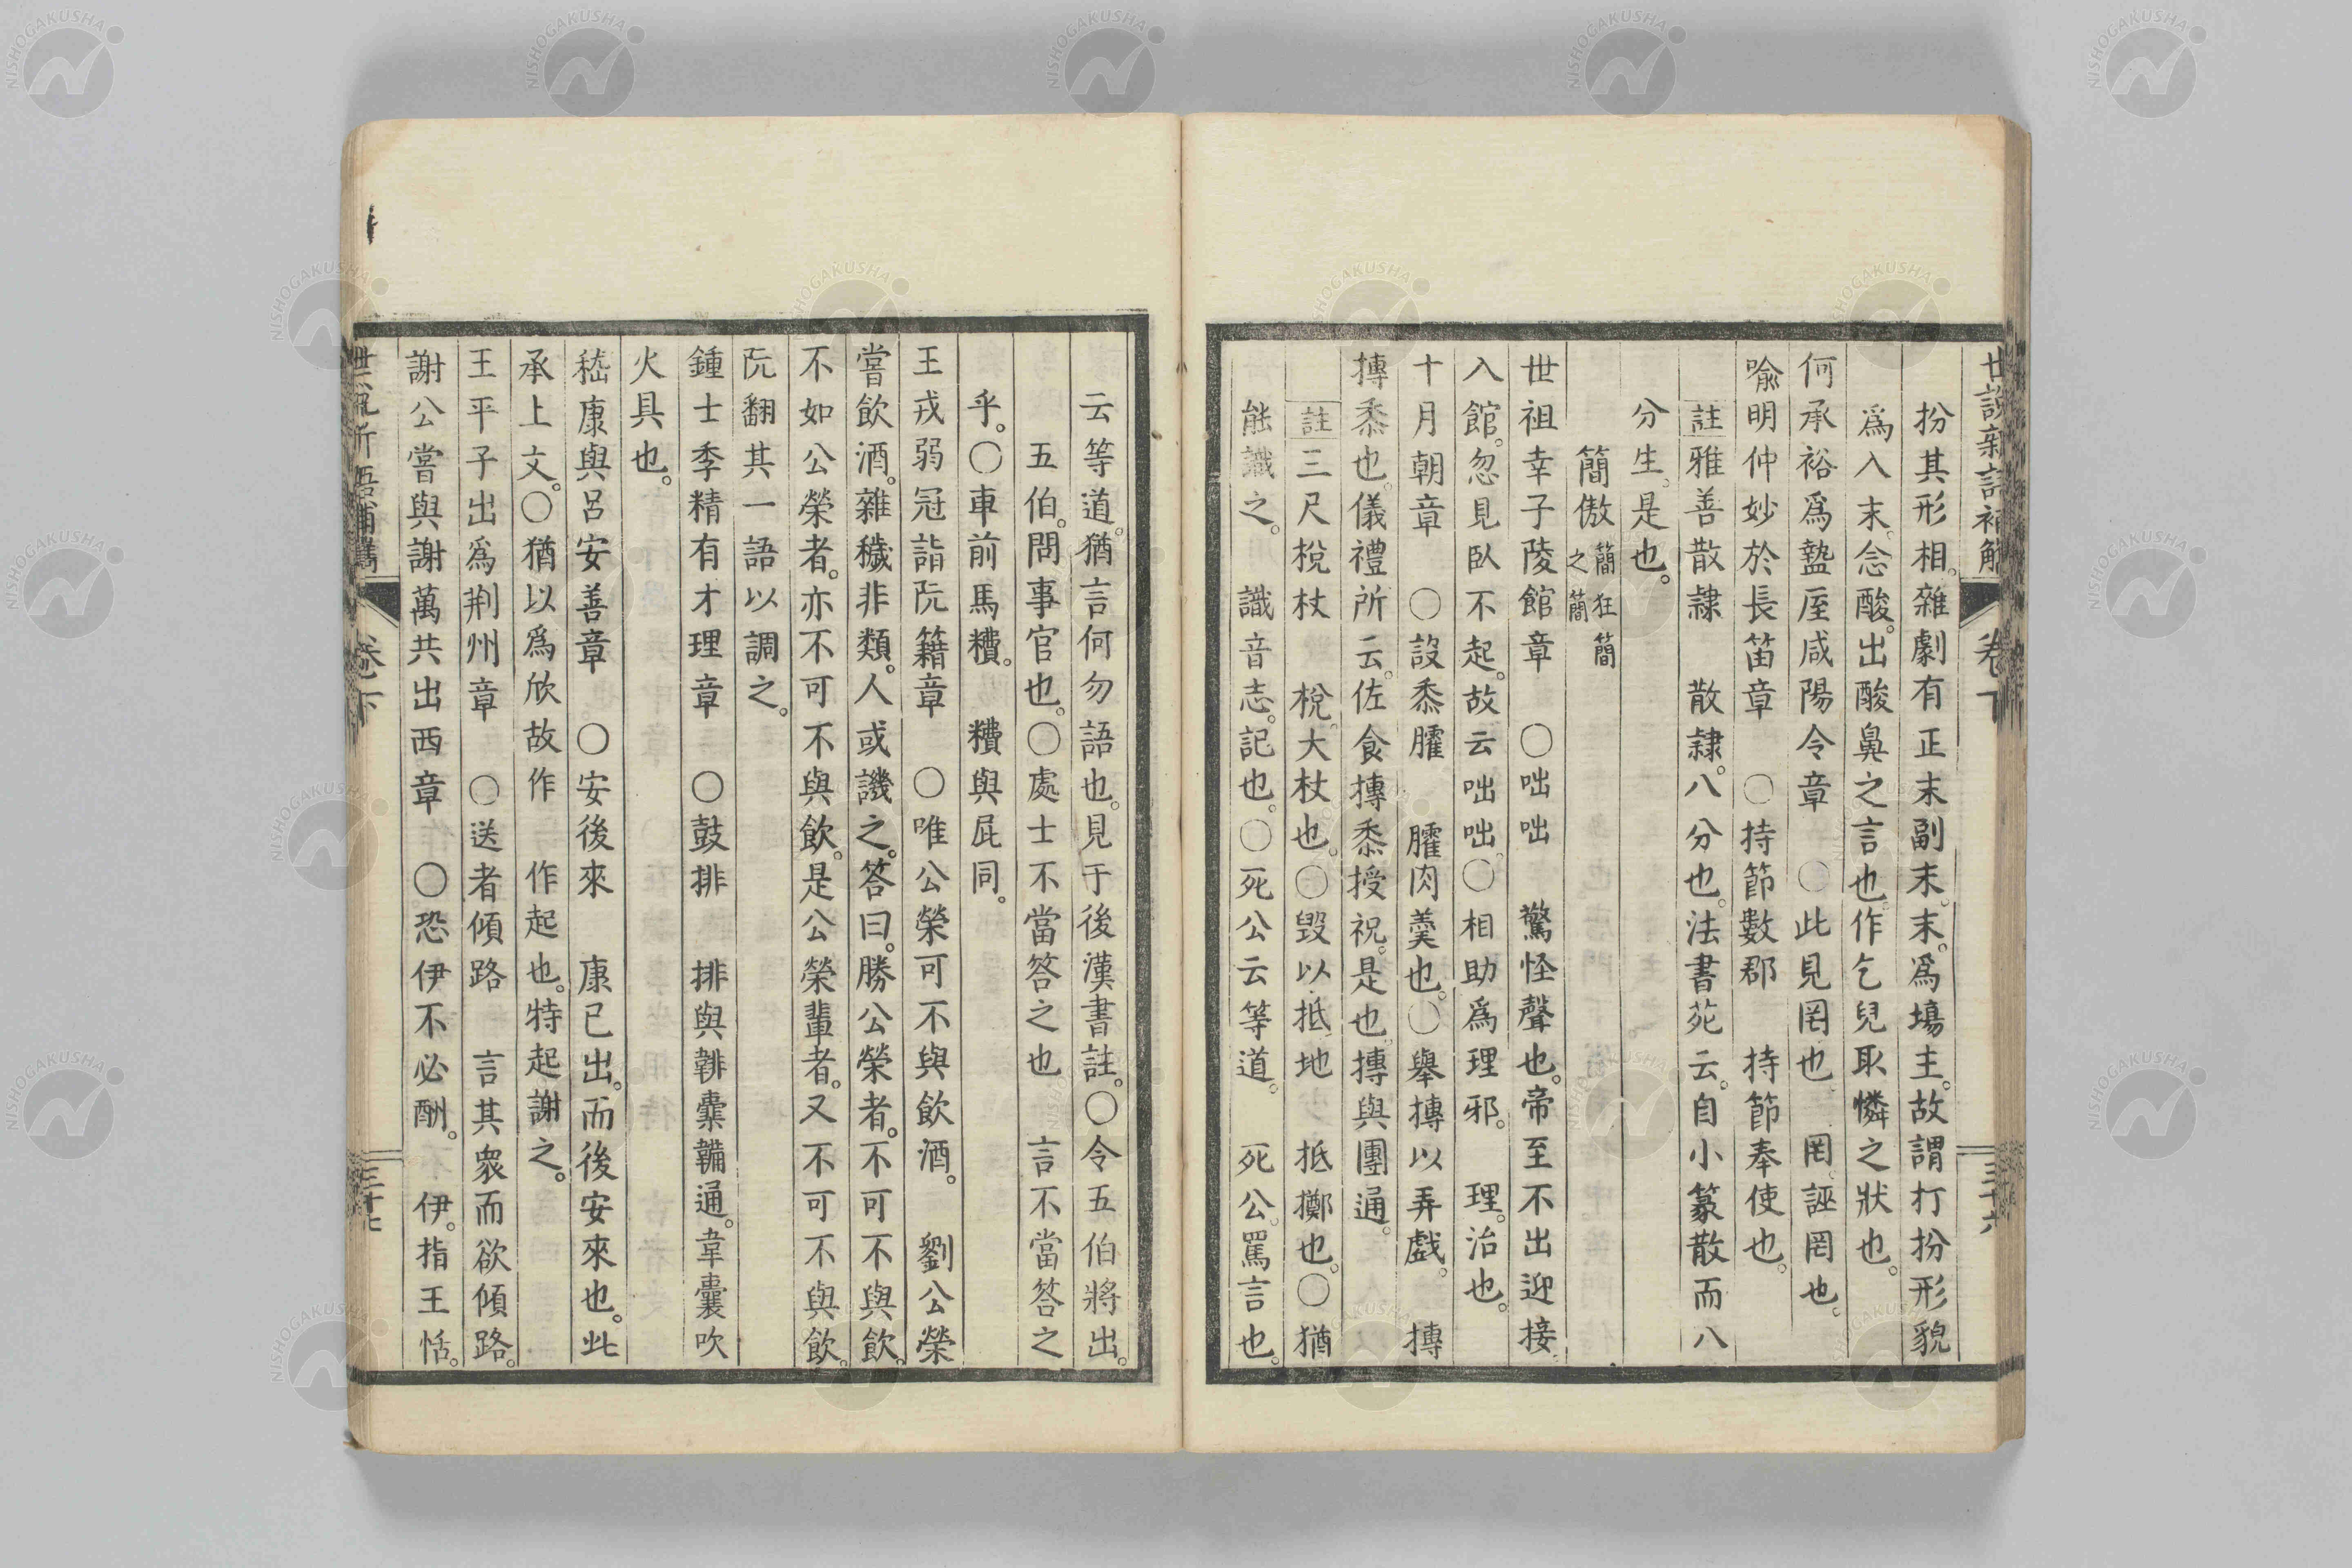 世說新語補觽 卷下 三十六
扮其形相。雜劇有正末副末。末。爲塲主。故謂打扮形貌
爲入末。念酸。出酸鼻之言也。作乞兒取憐之狀也。
何承裕爲盩厔咸陽令章 〇此見罔也 罔。誣罔也。
喩明仲妙於長笛章 〇持節數郡 持節奉使也。
註雅善散隸 散隸。八分也。法書苑云。自小篆散而八
分生。是也。
簡傲 簡狂簡之簡
世祖幸子陵館章 〇咄咄 驚怪聲也。帝至不出迎接
入館。忽見臥不起。故云咄咄。〇相助爲理邪。 理。治也。
十月朝章 〇設黍臛 臛肉羹也。〇舉摶以弄戲。 摶
摶黍也。儀禮所云。佐食摶黍授祝。是也。摶與團通。
註三尺梲杖 梲。大杖也。〇毀以抵地 抵擲也。〇猶
能識之。 識音志。記也。〇死公云等道。 死公。罵言也。
云等道。猶言何勿語也。見于後漢書註。〇令五伯將出。
五伯。問事官也。〇處士不當答之也 言不當答之
乎。〇車前馬糟。 糟與屁同。
王戎弱冠詣阮籍章 〇唯公榮可不與飲酒。 劉公榮
嘗飲酒。雜穢非類。人或譏之。答曰。勝公榮者。不可不與飲。
不如公榮者。亦不可不與飲。是公榮輩者。又不可不與飲。
阮翻其一語以調之。
鍾士季精有才理章 〇鼓排 排與韛橐韛通。韋囊吹
火具也。
嵇康與呂安善章 〇安後來 康已出。而後安來也。此
承上文。〇猶以爲欣故作 作起也。特起謝之。
王平子出爲荆州章 〇送者傾路 言其衆而欲傾路。
謝公嘗與謝萬共出西章 〇恐伊不必酬。 伊。指王恬。
卷下 三十七